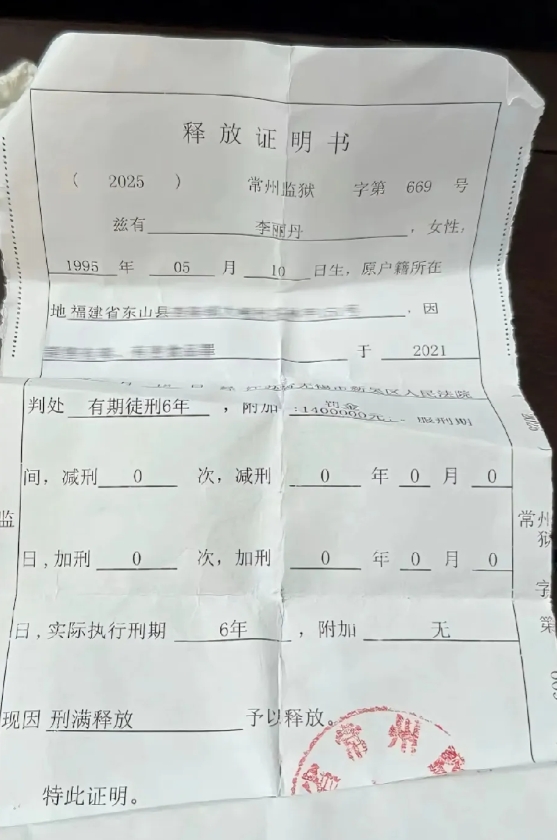 释放证明书
（ 2025 ） 常州监狱 字第 669 号
兹有 李丽丹 ，女性，
1995 年 05 月 10 日生，原户籍所在
地 福建省东山县 ，因
于 2021
新吴区人民法院
判处 有期徒刑6年 ，附加 罚金:1400000元. 服刑期
间，减刑 0 次，减刑 0 年 0 月 0
日，加刑 0 次，加刑 0 年 0 月 0
日，实际执行刑期 6年 ，附加 无
现因 刑满释放 予以释放。
特此证明。
监
常州
狱
字
第
州